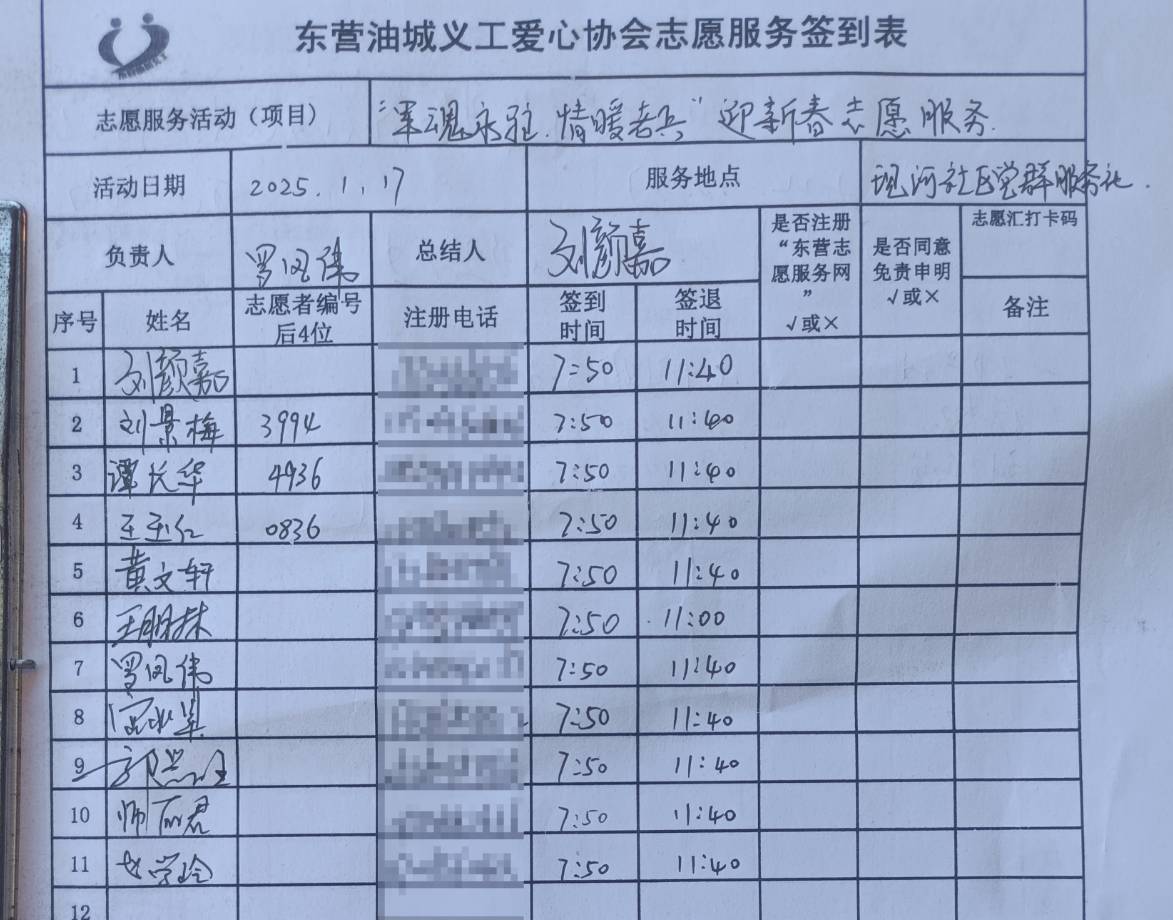 东营油城义工爱心协会志愿服务签到表
志愿服务活动（项目） “军魂永驻.情暖老兵”迎新春志愿服务.
活动日期 2025.1.17 服务地点 现河社区党群服务社.
负责人 罗风伟 总结人 刘颜嘉 是否注册“东营志愿服务网” √或× 是否同意免责申明 √或× 志愿汇打卡码
序号 姓名 志愿者编号后4位 注册电话 签到时间 签退时间 备注
1 刘颜嘉 7:50 11:40
2 刘景梅 3994 7:50 11:40
3 谭长华 4936 7:50 11:40
4 王玉仁 0836 7:50 11:40
5 黄文轩 7:50 11:40
6 7:50 11:00
7 罗风伟 7:50 11:40
8 7:50 11:40
9 7:50 11:40
10 7:50 11:40
11 7:50 11:40
12